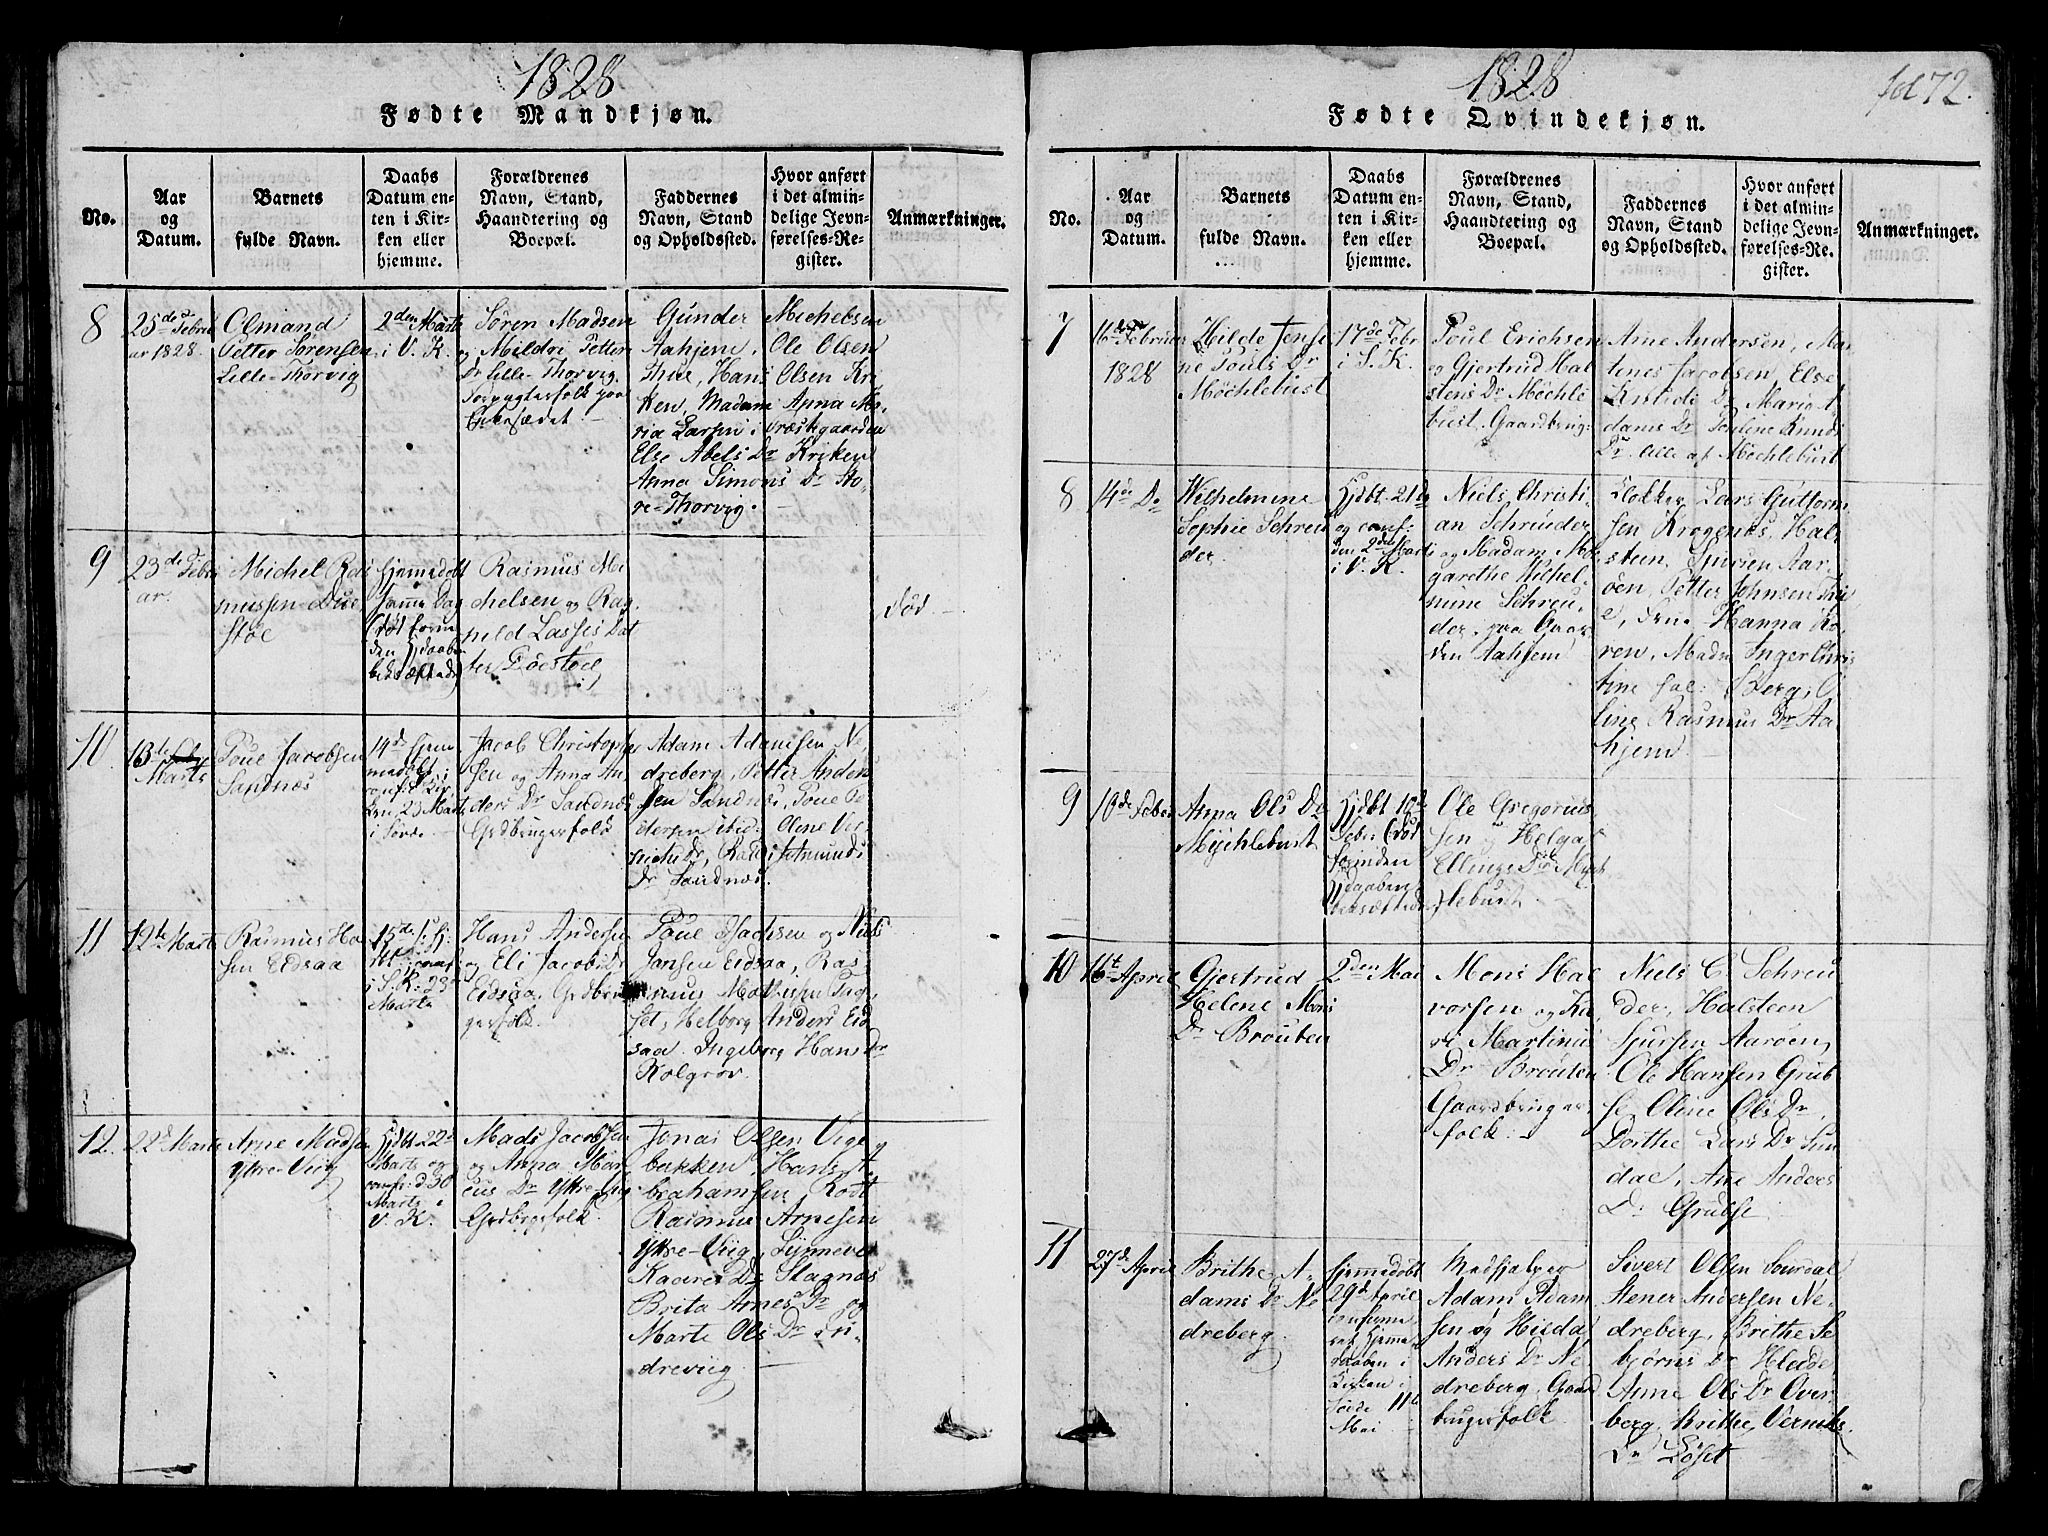 1828
Fødte Mandkjøn.
No.
Aar
og
Datum.
Barnets
fulde Navn.
Daabs
Datum en-
ten i Kir-
ken eller
hjemme.
Forældrenes
Navn, Stand,
Haandtering og
Boepæl.
Faddernes
Navn, Stand
og Opholdssted.
Hvor anført
i det almin-
delige Jevn-
førelses-Re-
gister.
Anmærkninger.
8
25de Febru
ar 1828.
Olmand
Petter Sørensen
Lille-Thorvig
2den Marts
i V. K.
Søren Madsen
og Mildri Petters
Dr Lille-Thorvig.
Gunder Michelsen
Aahjem, Ole Olsen
Hans Olsen Kri
ken, Madam Anna Ma-
ria Larsen i Præstegaarden
Else Abels Dr Kriken
Anna Simons Dr Sto-
re-Thorvig.
9
23de Febru
ar.
Michel Ras
mussen
Hjemmedøbt
samme Dag
(død forin
den Hjdaaben
bedsæftede)
Rasmus Mi
chelsen og Rag
nild Lasses Dat
ter
død
10
13de
Marts
Poul Jacobsen
Sandnæs
14de Hjem
medøbt
conf: i Kir
ken 23 Marts
i Søvde
Jacob Christophe
sen og Anna An
ders Dr Sandnæs
Grdbrugerfolk
Adam Adamsen Ne
dreberg, Petter Anders
sen Sandnæs, Poul Pe
dersen ibid:
Dr Sandnæs.
11
12te Marts
Rasmus Han
sen Eidsaa
15de
i S. K. 23
Marts
Hans Andersen
og Eli Jacobs Dr
Eidsaa, Grdbru
gerfolk.
Poul Isachsen og Niels
Jansen Eidsaa, Ras
mus Mathisen
Helborg Anders Eid
saa. Ingeborg Hans Dr
Kolgrov.
12.
22d Marts
Arne Madsen
Yttre-Viig
Hjdbt 22d
Marts og
conf: d 30
Marts i
V. K.
Mads Jacobsen
og Anna Mar
cus Dr Yttre Viig
Grdbrgerfolk.
Jonas Olsen Vige
bakken, Hans A
brahamsen,
Rasmus Arnesen
Yttre-Viig, Synneve
Kaares Dr Slagnæs
Brita Arnes Dr og
Marte Ols Dr In-
dreviig
1828
fol 72.
Fødte Qvindekjøn.
No.
Aar
og
Datum.
Barnets
fulde Navn.
Daabs
Datum en-
ten i Kir-
ken eller
hjemme.
Forældrenes
Navn, Stand,
Haandtering og
Boepæl.
Faddernes
Navn, Stand
og Opholdssted.
Hvor anført
i det almin-
delige Jevn-
førelses-Re-
gister.
Anmærkninger.
7
16de Februar
1828
Hilde Jense
ne Pouls Dr
Møchlebust
17de Febr
i S. K.
Poul Erichsen
og Gjertrud Hal
stens Dr Møchle
bust, Gaardbrug:
Arne Andersen, Mar
tenes Jacobsen, Else
Knuds Dr Mari A
dams Dr Knuds
Dr alle af Møchlebust
8
14de Do
Wilhelmine
Sophie Schreu
der.
Hjdbt. 21de
og conf:
den 2den Mart
i V. K.
Niels Christi
an Schreuder
og Madam Mar
garethe Wilhel
mine Schreu
der, paa Gaar
den Aahjem
Klokker Lars Guttorm
sen Kragenæs, Hal
steen Sjursen Aar
øen, Petter Johnsen
Hanna
Madm Inger Chris
tine Berg, O
line Rasmus Dr Aa
hjem
9
10de Febr
Anna Ols Dr
Myklebust
Hjdbt 10d
Febr (død
forinden
Hjdaaben
bedsæftedes)
Ole Gregorius
sen og Helga
Ellings Dr Myk
lebust
10
16t April
Gjertrud
Helene Mons
Dr Brouten
2den Mai
Mons Hal
vorsen og Ka
ri Martinus
Dr Brouten
Gaardbruger
folk.
Niels C. Schreu
der, Halsteen
Sjursen Aarøen,
Ole Hansen Grub
se, Oline Ols Dr,
Dorthe Lars Dr Sun
dal, Ane Anders
Dr Grubse
11
27de April
Brithe A-
dams Dr Ne
dreberg
Hjemmedøbt
29d April
confirme
ret Hjemme
daaben i
Kirken i
Søvde 11te
Mai
Medhjelper
Adam Adam
sen og Hilda
Anders Dr Ne
dreberg, Gaard
brugerfolk.
Sivert Olsen Sourdal
Stener Andersen Ne-
dreberg, Brithe Se
bjørns Dr Hleide
Anne Ols Dr Over
berg, Brithe
Dr Løset